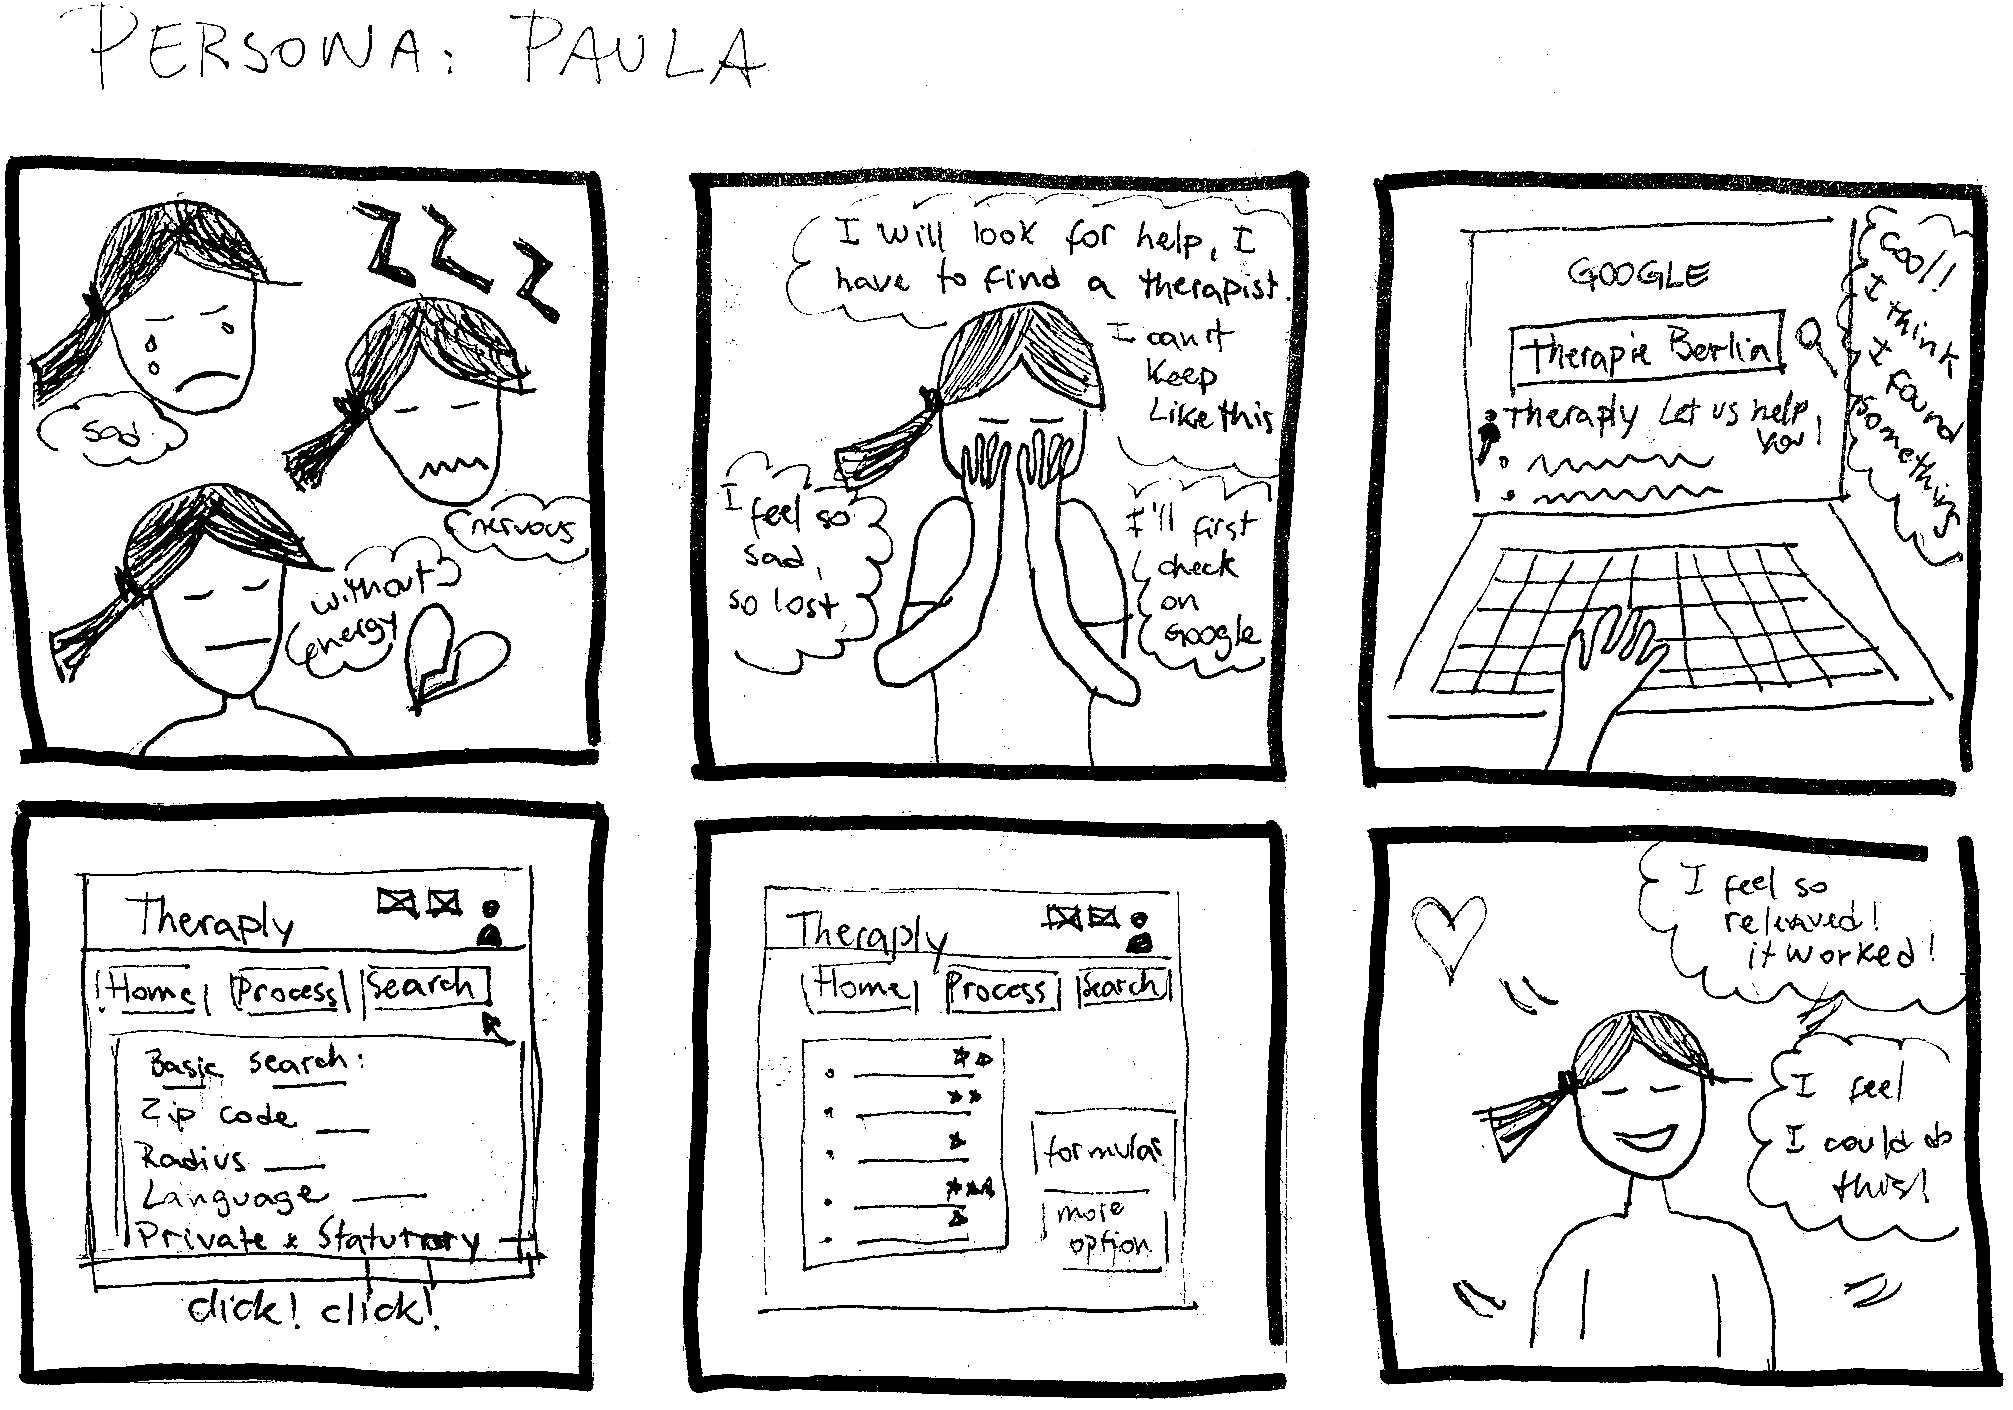 PERSONA: PAULA
sad
nervous
without
energy
I will look for help, I
have to find a therapist.
I can't
keep
like this
I feel so
sad,
so lost
I'll first
check
on
Google
GOOGLE
Therapie Berlin
Theraply Let us help
you!
Cool!
I think
I found
something
Theraply
Home
Process
Search
Basic search:
Zip code
Radius
Language
Private &
click! click!
Theraply
Home
Process
Search
formular
more
option
I feel so
it worked!
I feel
I could do
this!